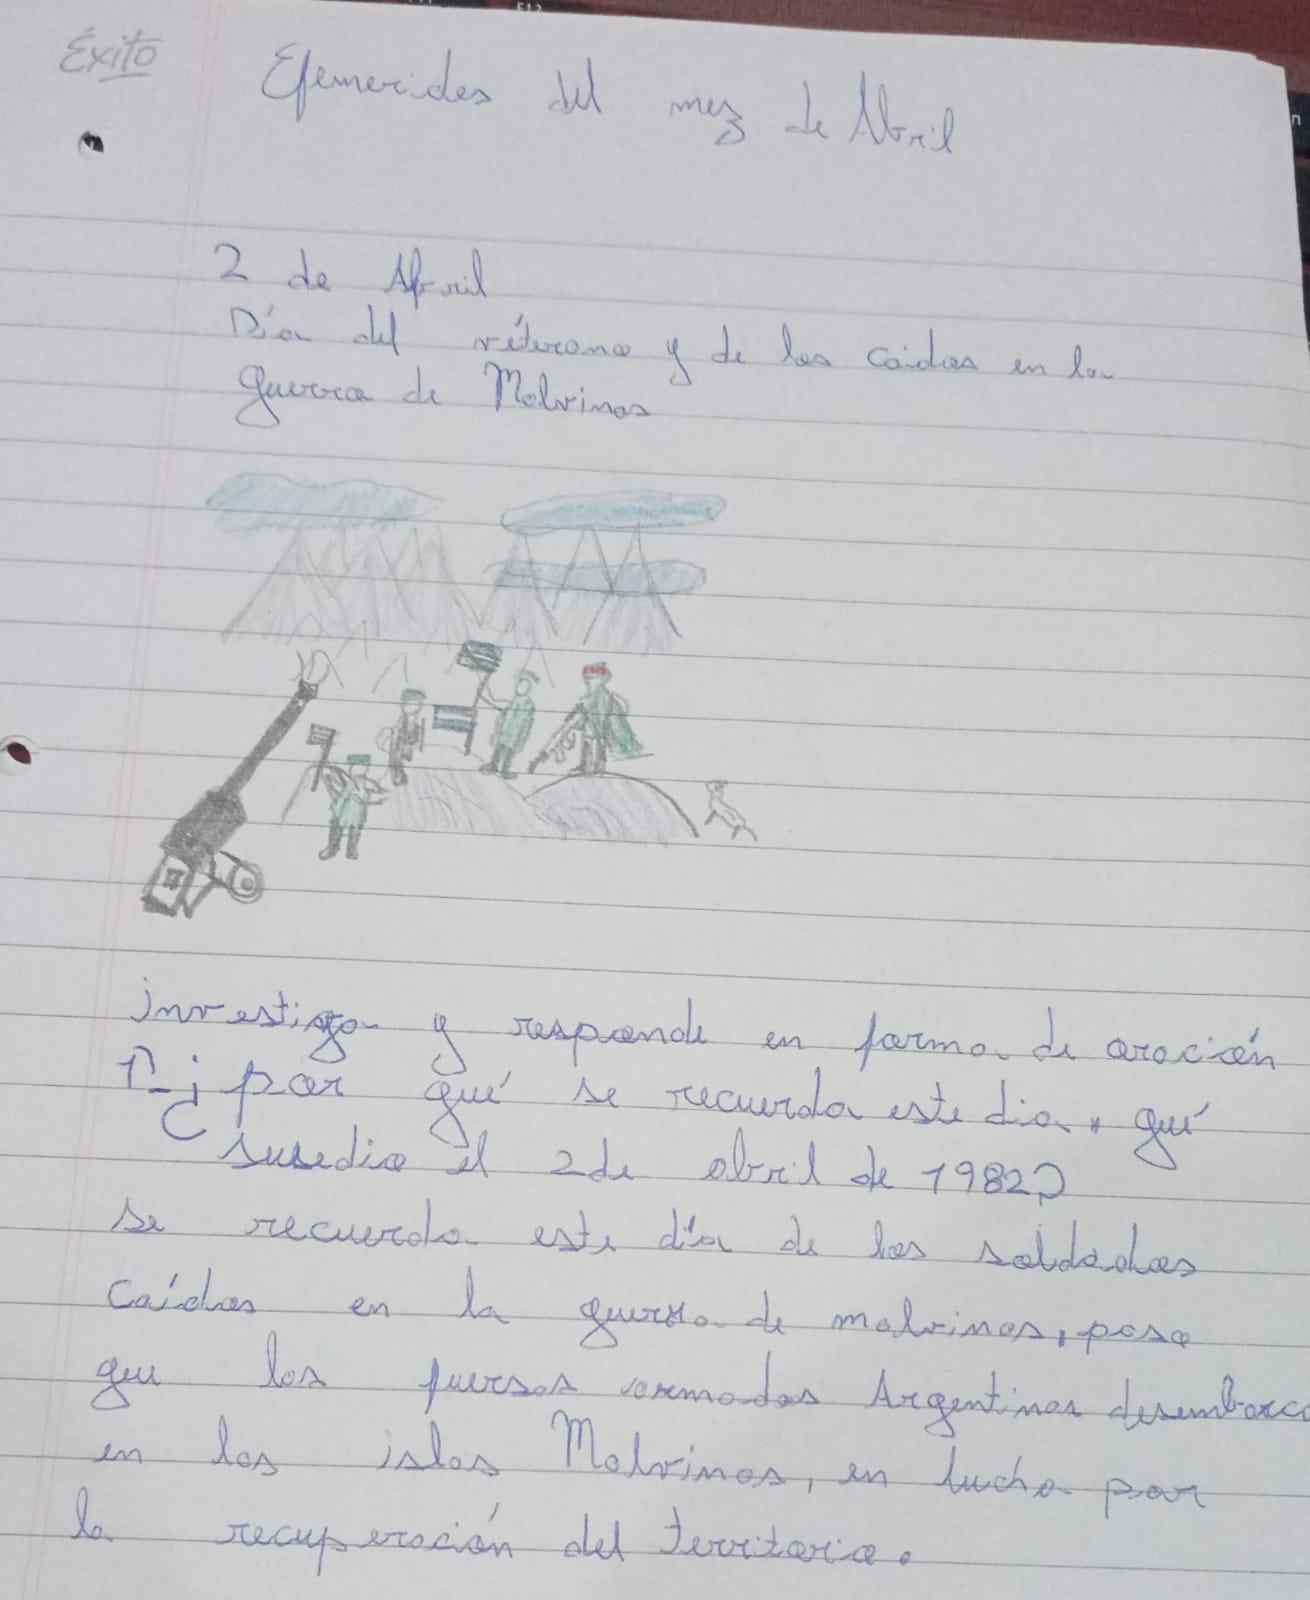 Éxito
Efemerides del mez de Abril
2 de Abril
Día del véterano y de los caidos en la
guerra de Malvinas
investiga y responde en forma de oración
1-¿por qué se recuerda este dia, qué
susedio el 2 de abril de 1982?
se recuerda este día de los soldados
caídos en la guerra de malvinas, paso
que las fuersas armadas Argentinas desembarco
en las islas Malvinas, en lucha por
la recuperación del territorio.